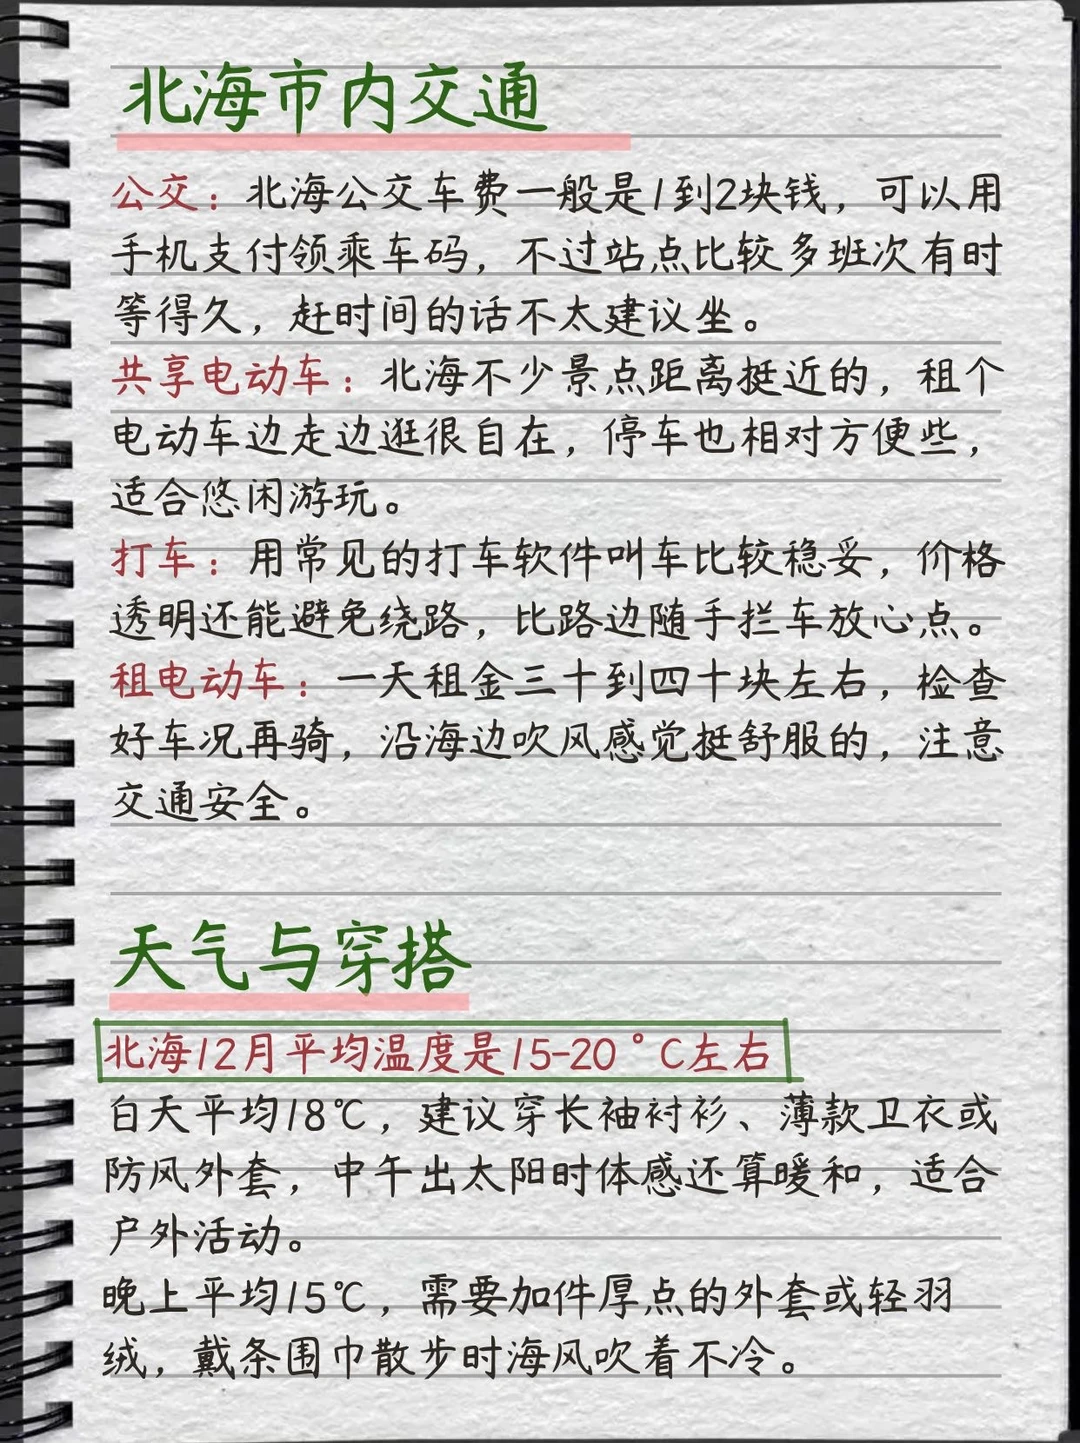 北海市内交通
公交：北海公交车费一般是1到2块钱，可以用
手机支付领乘车码，不过站点比较多班次有时
等得久，赶时间的话不太建议坐。
共享电动车：北海不少景点距离挺近的，租个
电动车边走边逛很自在，停车也相对方便些，
适合悠闲游玩。
打车：用常见的打车软件叫车比较稳妥，价格
透明还能避免绕路，比路边随手拦车放心点。
租电动车：一天租金三十到四十块左右，检查
好车况再骑，沿海边吹风感觉挺舒服的，注意
交通安全。
天气与穿搭
北海12月平均温度是15-20°C左右
白天平均18℃，建议穿长袖衬衫、薄款卫衣或
防风外套，中午出太阳时体感还算暖和，适合
户外活动。
晚上平均15℃，需要加件厚点的外套或轻羽
绒，戴条围巾散步时海风吹着不冷。